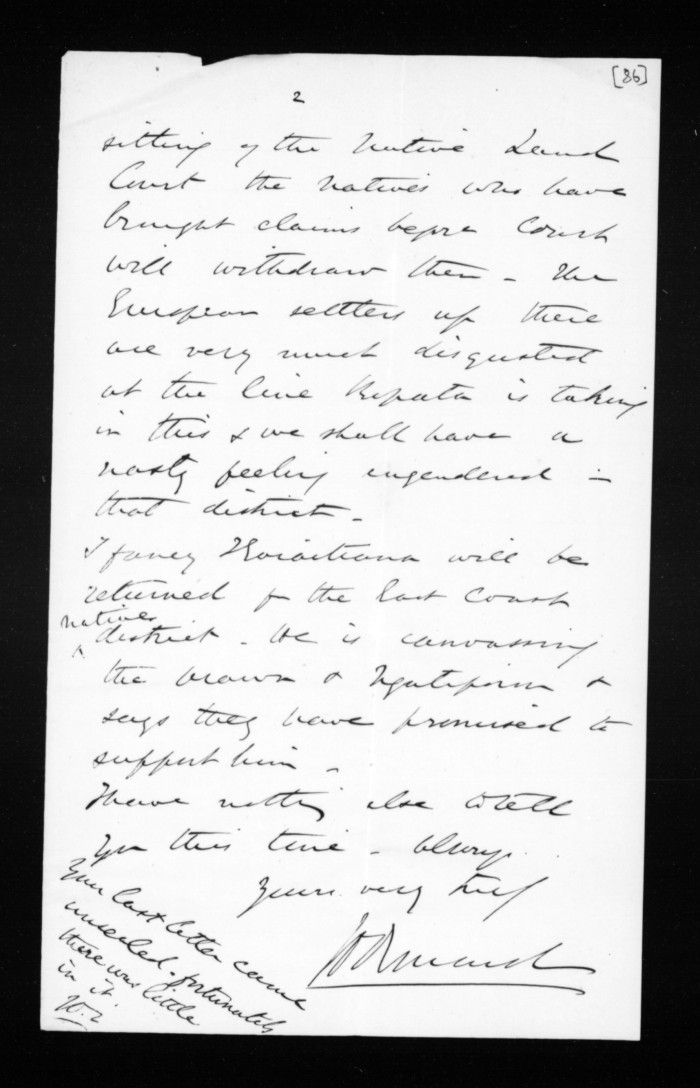 [36]
2
sitting of the Native Land
Court the natives who have
brought claims before Court
will withdraw them - The
European settlers up there
are very much disgusted
at the line Ropata is taking
in this & we shall have a
nasty feeling engendered in
that district -
I fancy will be
returned for the East Coast
natives
district - He is canvassing
the & Ngatiporou &
says they have promised to
support him -
I have nothing else to tell
you this time - Always
Yours very truly
JD Ormond
Your last letter came
unsealed - fortunately
there was little
in it.